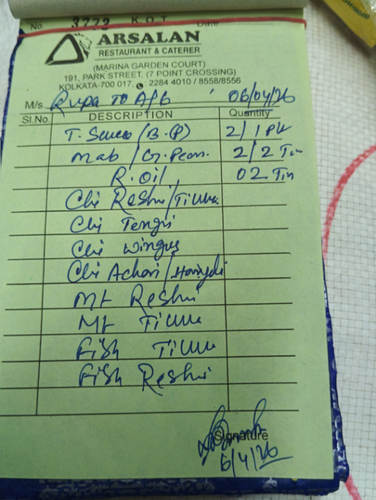 No. 3772 K.O.T. Date
ARSALAN
RESTAURANT & CATERER
(MARINA GARDEN COURT)
191, PARK STREET, (7 POINT CROSSING)
KOLKATA-700 017. 2284 4010 / 8558/8556
M/s. Rupa TO A/6 06/04/26
Sl.No. DESCRIPTION Quantity
T. / (B.P) 2/1 Pk
mab / G. Pean. 2/2 Tin
R. oil 02 Tin
Chi Reshmi/Tikka
Chi Tengri
Chi wings
Chi Achari/Hariyali
Mt Reshmi
Mt Tikka
Fish Tikka
Fish Reshmi
Signature
6/4/26